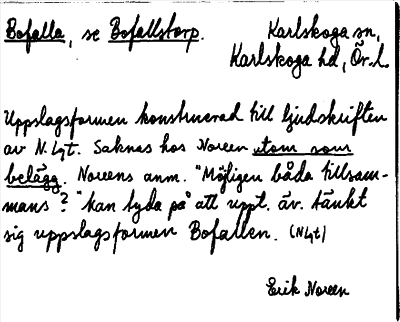 Bofalla, se Bofallstorp. Karlskoga sn,
Karlskoga hd, Ör. l.
Uppslagsformen konstruerad till ljudskriften
av N. Lgt. Saknas hos Noreen utom som
belägg. Noreens anm. "Möjligen båda tillsam-
mans?" kan tyda på att uppt. äv. tänkt
sig uppslagsformen Bofallen. (NLgt)
Erik Noreen